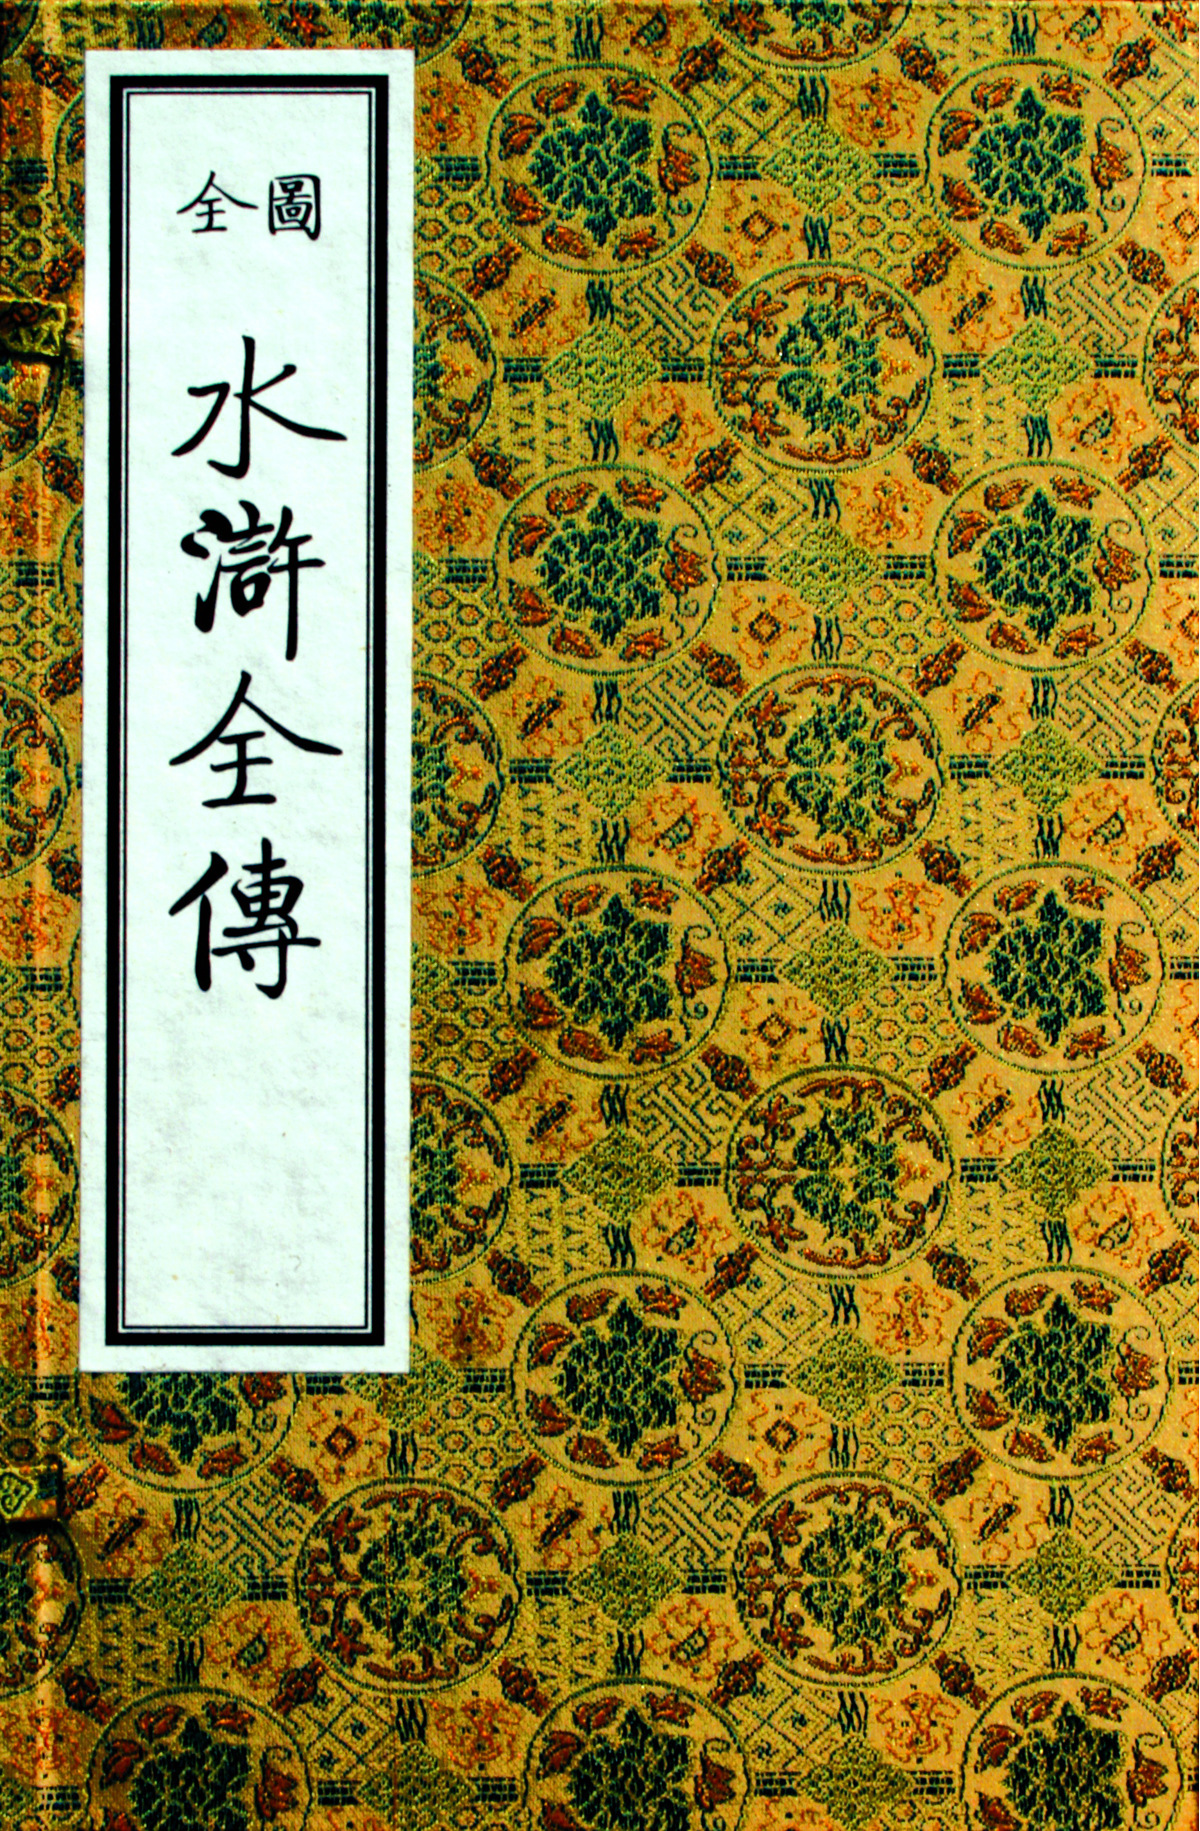 圖全
水滸全傳